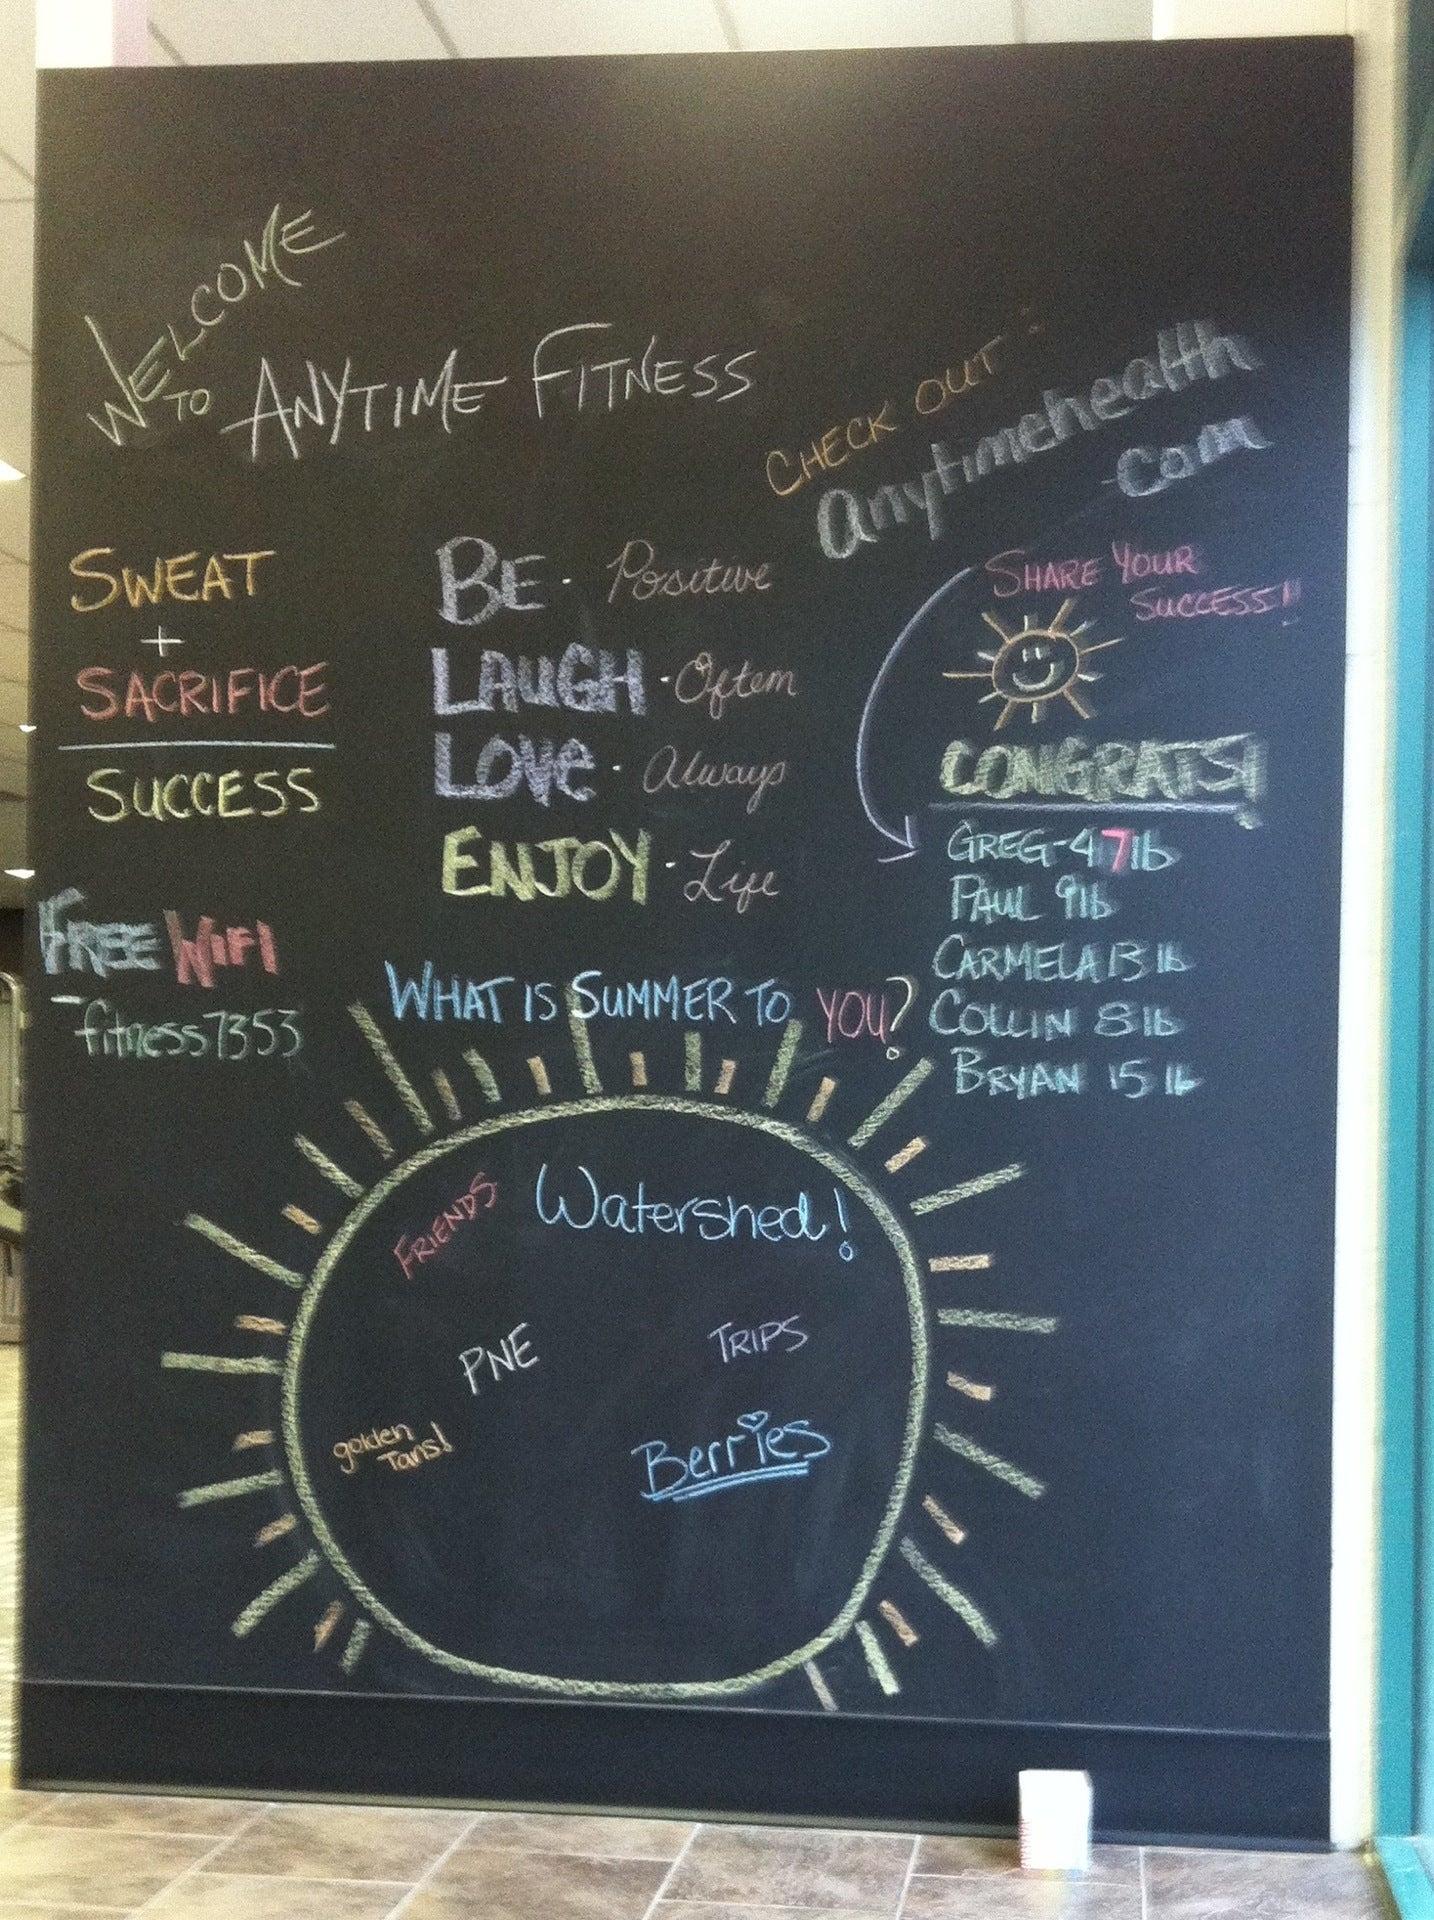 WELCOME
TO ANYTIME FITNESS
CHECK OUT:
anytimehealth
.com
SWEAT
+
SACRIFICE
SUCCESS
FREE WIFI
- fitness7353
BE · Positive
LAUGH · Often
LOVE · Always
ENJOY · Life
SHARE YOUR
SUCCESS!!
CONGRATS!
GREG-47lb
PAUL 9lb
CARMELA 13 lb
COLLIN 8lb
BRYAN 15 lb
WHAT IS SUMMER TO YOU?
FRIENDS
Watershed!
PNE
TRIPS
golden
Tans!
Berries